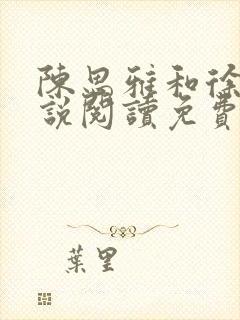 陳思雅和徐
說閱讀免費
葉里